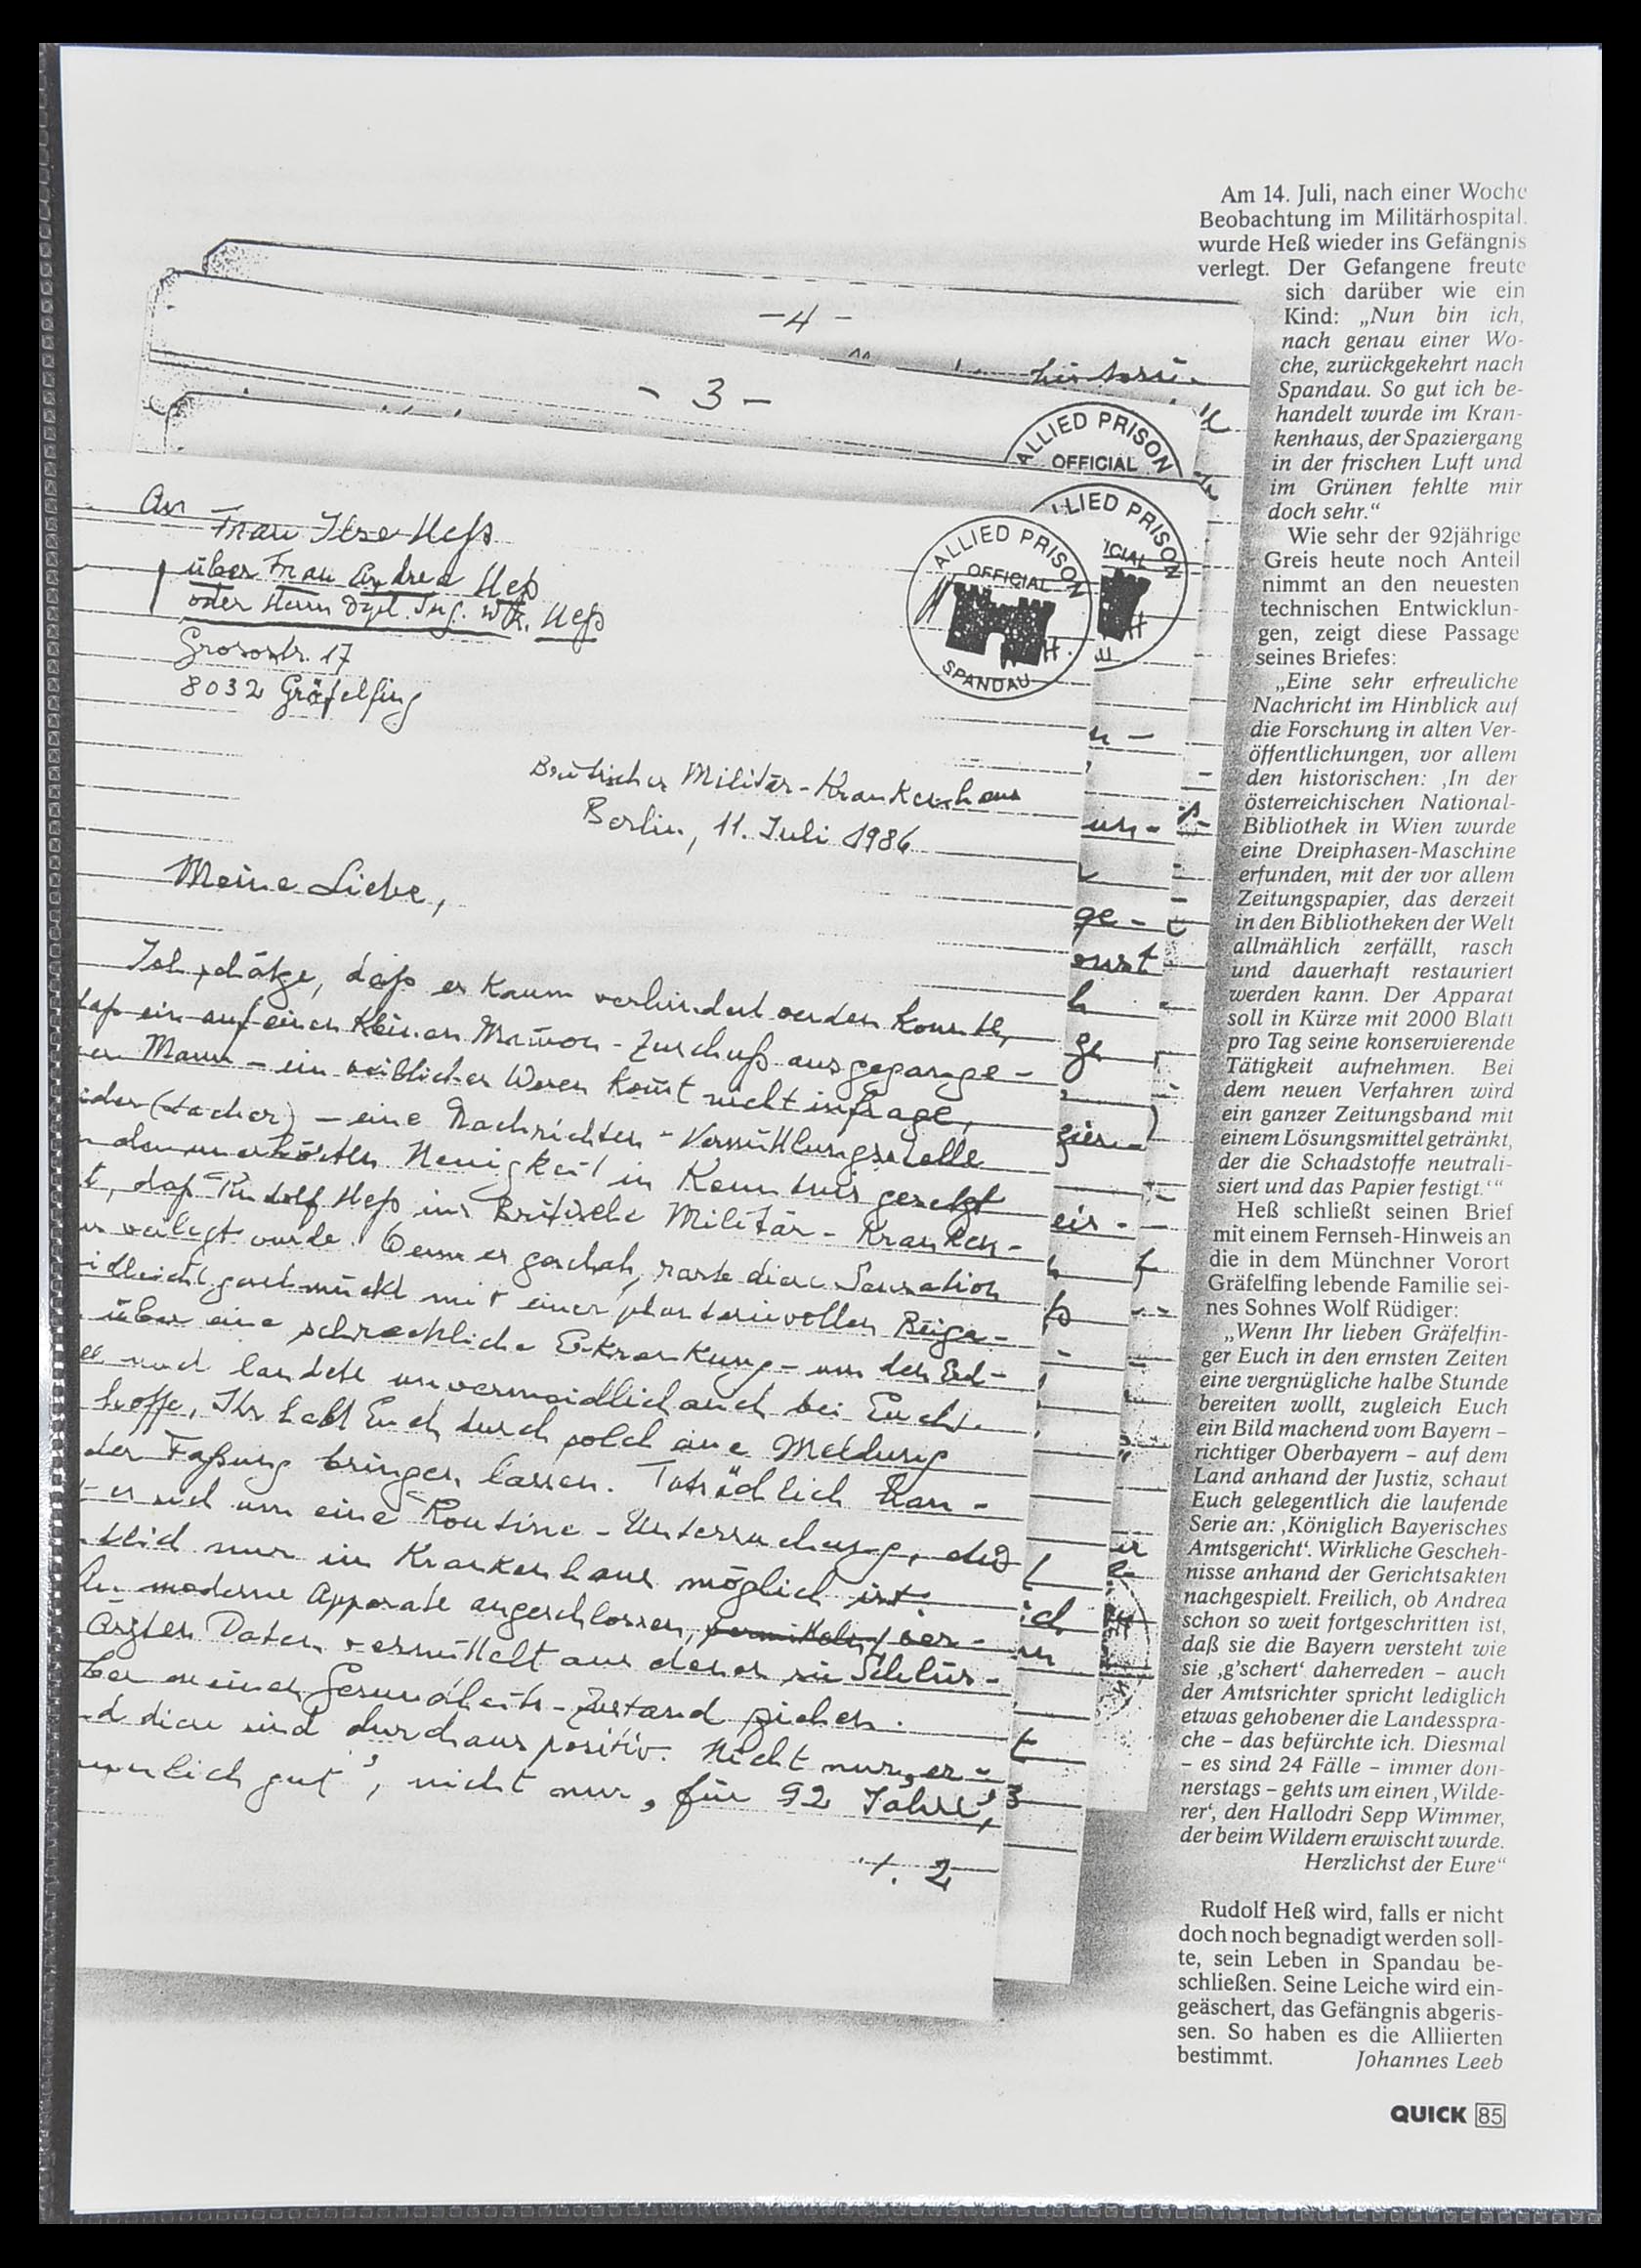 -4-
- 3 -
ALLIED PRISON
OFFICIAL
ALLIED PRISON
OFFICIAL
SPANDAU
An Frau Ilse Heß
über Frau Andrea Heß
oder Herrn Dipl. Ing. W.R. Heß
8032 Gräfelfing
Britisches Militär-Krankenhaus
Berlin, 11. Juli 1986
Meine Liebe,
Ich schätze, daß es kaum verhindert werden konnte,
daß ein auf einen kleinen Mammon-Zuschuß ausgegange-
er Mann - ein weibliches Wesen kommt nicht infrage,
- eine Nachrichten-Vermittlungsstelle
unerhörten Neuigkeit in Kenntnis gesetzt
t, daß Rudolf Heß ins Britische Militär-Kranken-
verlegt wurde. Wenn es geschah, raste diese Sensation
geschmückt mit einer phantasievollen Beiga-
über eine schreckliche Erkrankung - um den Erd-
und landete unvermeidlich auch bei Euch.
hoffe, Ihr habt Euch durch solch eine Meldung
der Faßung bringen lassen. Tatsächlich han-
es sich um eine Routine-Untersuchung, die
nur im Krankenhaus möglich ist.
An moderne Apparate angeschlossen, ver-
Ärzten Daten vermittelt aus denen sie Schlüs-
ber meinen Gesundheits-Zustand ziehen.
d diese sind durchaus positiv. Nicht nur „er-
unlich gut“, nicht nur „für 92 Jahre“,
./. 2
Am 14. Juli, nach einer Woche
Beobachtung im Militärhospital,
wurde Heß wieder ins Gefängnis
verlegt. Der Gefangene freute
sich darüber wie ein
Kind: „Nun bin ich,
nach genau einer Wo-
che, zurückgekehrt nach
Spandau. So gut ich be-
handelt wurde im Kran-
kenhaus, der Spaziergang
in der frischen Luft und
im Grünen fehlte mir
doch sehr.“
Wie sehr der 92jährige
Greis heute noch Anteil
nimmt an den neuesten
technischen Entwicklun-
gen, zeigt diese Passage
seines Briefes:
„Eine sehr erfreuliche
Nachricht im Hinblick auf
die Forschung in alten Ver-
öffentlichungen, vor allem
den historischen: ‚In der
österreichischen National-
Bibliothek in Wien wurde
eine Dreiphasen-Maschine
erfunden, mit der vor allem
Zeitungspapier, das derzeit
in den Bibliotheken der Welt
allmählich zerfällt, rasch
und dauerhaft restauriert
werden kann. Der Apparat
soll in Kürze mit 2000 Blatt
pro Tag seine konservierende
Tätigkeit aufnehmen. Bei
dem neuen Verfahren wird
ein ganzer Zeitungsband mit
einem Lösungsmittel getränkt,
der die Schadstoffe neutrali-
siert und das Papier festigt.‘“
Heß schließt seinen Brief
mit einem Fernseh-Hinweis an
die in dem Münchner Vorort
Gräfelfing lebende Familie sei-
nes Sohnes Wolf Rüdiger:
„Wenn Ihr lieben Gräfelfin-
ger Euch in den ernsten Zeiten
eine vergnügliche halbe Stunde
bereiten wollt, zugleich Euch
ein Bild machend vom Bayern –
richtiger Oberbayern – auf dem
Land anhand der Justiz, schaut
Euch gelegentlich die laufende
Serie an: ‚Königlich Bayerisches
Amtsgericht‘. Wirkliche Gescheh-
nisse anhand der Gerichtsakten
nachgespielt. Freilich, ob Andrea
schon so weit fortgeschritten ist,
daß sie die Bayern versteht wie
sie ‚g’schert‘ daherreden – auch
der Amtsrichter spricht lediglich
etwas gehobener die Landesspra-
che – das befürchte ich. Diesmal
– es sind 24 Fälle – immer don-
nerstags – gehts um einen ‚Wilde-
rer‘, den Hallodri Sepp Wimmer,
der beim Wildern erwischt wurde.
Herzlichst der Eure“
Rudolf Heß wird, falls er nicht
doch noch begnadigt werden soll-
te, sein Leben in Spandau be-
schließen. Seine Leiche wird ein-
geäschert, das Gefängnis abgeris-
sen. So haben es die Alliierten
bestimmt. Johannes Leeb
QUICK 85